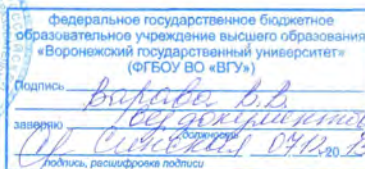 федеральное государственное бюджетное
образовательное учреждение высшего образования
«Воронежский государственный университет»
(ФГБОУ ВО «ВГУ»)
Подпись Варава В.В.
заверяю вед документовед
должность
07.12.20
подпись, расшифровка подписи